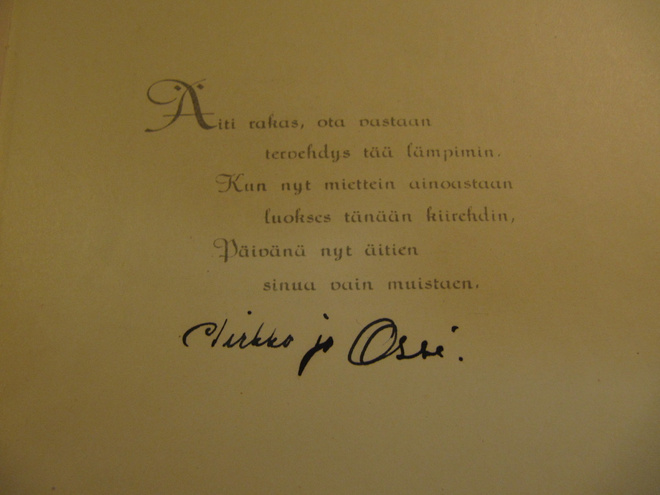 Äiti rakas, ota vastaan
tervehdys tää lämpimin.
Kun nyt miettein ainoastaan
luokses tänään kiirehdin,
Päivänä nyt äitien
sinua vain muistaen.
ja Ossi.